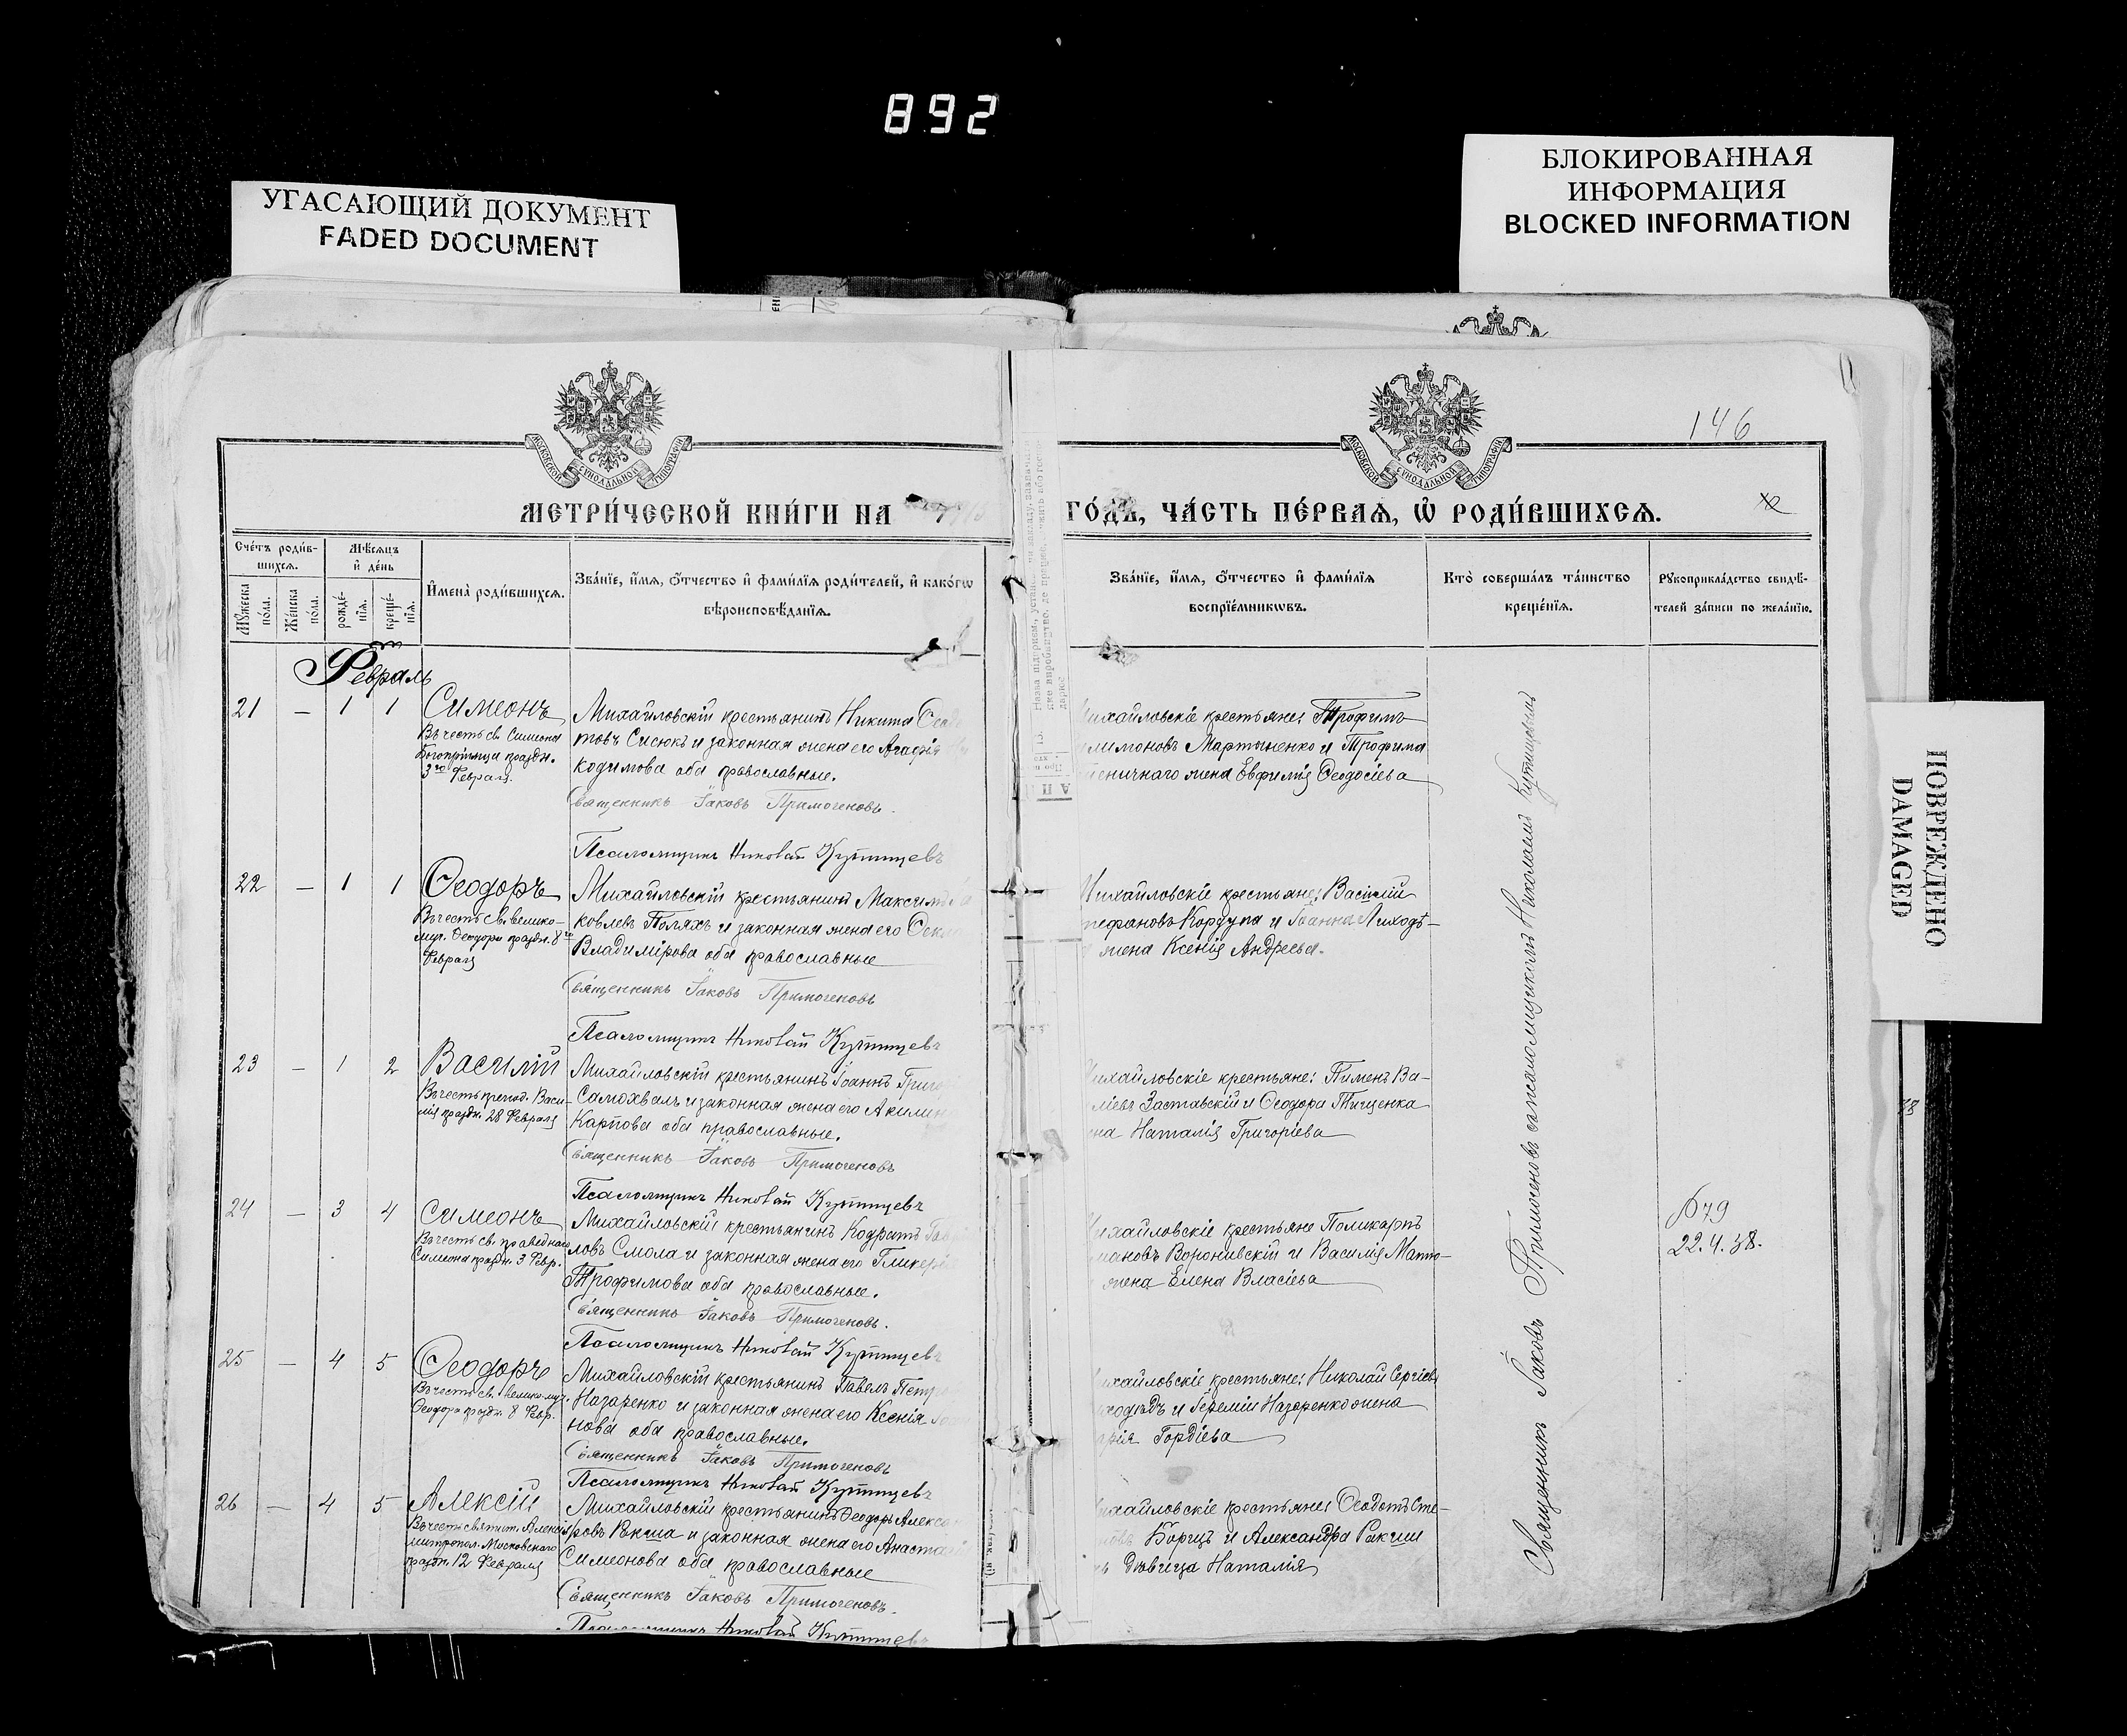 892
УГАСАЮЩИЙ ДОКУМЕНТ
FADED DOCUMENT
БЛОКИРОВАННАЯ
ИНФОРМАЦИЯ
BLOCKED INFORMATION
ПОВРЕЖДЕНО
DAMAGED
146
МОСКОВСКОЙ СѴНОДАЛЬНОЙ ТИПОГРАФІИ
МОСКОВСКОЙ СѴНОДАЛЬНОЙ ТИПОГРАФІИ
МЕТРИ́ЧЕСКОЙ КНИ́ГИ НА
ГО́ДЪ, ЧА́СТЬ ПЕ́РВАЯ, Ѡ РОДИ́ВШИХСЯ.
Сче́тъ роди́в-
шихся.
Мꙋ́жеска по́ла.
Же́нска по́ла.
Мѣ́сяцъ
и де́нь
рожде́-
нїя.
креще́-
нїя.
Имена̀ роди́вшихся.
Зва́нїе, и́мя, о́тчество и фами́лїя роди́телей, и како́гѡ
вѣроисповѣ́данїя.
Зва́нїе, и́мя, о́тчество и фами́лїя
воспрїе́мникѡвъ.
Кто̀ соверша́лъ та́инство
креще́нїя.
Рꙋкоприкла́дство свидѣ́-
телей за́писи по жела́нїю.
Февраль
21 — 1 1 Симеонъ
Въ честь св. Симеона
Богопріимца праздн.
3го Февраля.
Михайловскій крестьянинъ Никита
товъ Сисюкъ и законная жена его Агафія
кодимова оба православные.
Священникъ Іаковъ Примогеновъ.
Псаломщикъ Николай Купитцевъ
Михайловскіе крестьяне: Трофимъ
лимоновъ Мартыненко и Трофима
еничнаго жена Евфимія Ѳеодосіева
22 — 1 1 Ѳеодоръ
Въ честь св. велико-
муч. Ѳеодора праздн. 8го
Февраля
Михайловскій крестьянинъ Максимъ
ковлевъ Поляхъ и законная жена его
Владимірова оба православные
Священникъ Іаковъ Примогеновъ
Псаломщикъ Николай Купитцевъ
Михайловскіе крестьяне: Василій
тефановъ Кордупа и Іоанна Лиходѣ-
жена Ксенія Андреева.
23 — 1 2 Василій
Въ честь препод. Васи-
лія праздн. 28 Февраля
Михайловскій крестьянинъ Іоаннъ Григо
Самохвалъ и законная жена его Акилин
Карпова оба православные.
Священникъ Іаковъ Примогеновъ
Псаломщикъ Николай Купитцевъ
Михайловскіе крестьяне: Пименъ Ва-
ліевъ Заставскій и Ѳеодора Тищенка
на Наталія Григоріева
24 — 3 4 Симеонъ
Въ честь св. праведнаго
Симеона праздн. 3 Февр.
Михайловскій крестьянинъ Кодратъ
ловъ Смола и законная жена его Гликерія
Трофимова оба православные.
Священникъ Іаковъ Примогеновъ.
Псаломщикъ Николай Купитцевъ
Михайловскіе крестьяне Поликарпъ
мановъ Воронивскій и Василія Матю-
жена Елена Власіева
679
22.4.38.
25 — 4 5 Ѳеодоръ
Въ честь св. великомуч.
Ѳеодора праздн. 8 Февр.
Михайловскій крестьянинъ Павелъ Петр
Назаренко и законная жена его Ксенія
нова оба православные.
Священникъ Іаковъ Примогеновъ
Псаломщикъ Николай Купитцевъ
Михайловскіе крестьяне: Николай Сергіевъ
ходѣдъ и Іереміи Назаренко жена
рія Гордіева
26 — 4 5 Алексій
Въ честь святит. Алексія
митропол. Московскаго
праздн. 12 Февраля
Михайловскій крестьянинъ Ѳеодоръ Алекса
ровъ Ракша и законная жена его Анастасія
Симеонова оба православные
Священникъ Іаковъ Примогеновъ.
Псаломщикъ Николай Купитцевъ
Михайловскіе крестьяне Ѳеодотъ Сте-
Борщъ и Александра Ракши
дѣвица Наталія
Священникъ Іаковъ Примогеновъ съ псаломщикомъ Николаемъ Купитцевымъ